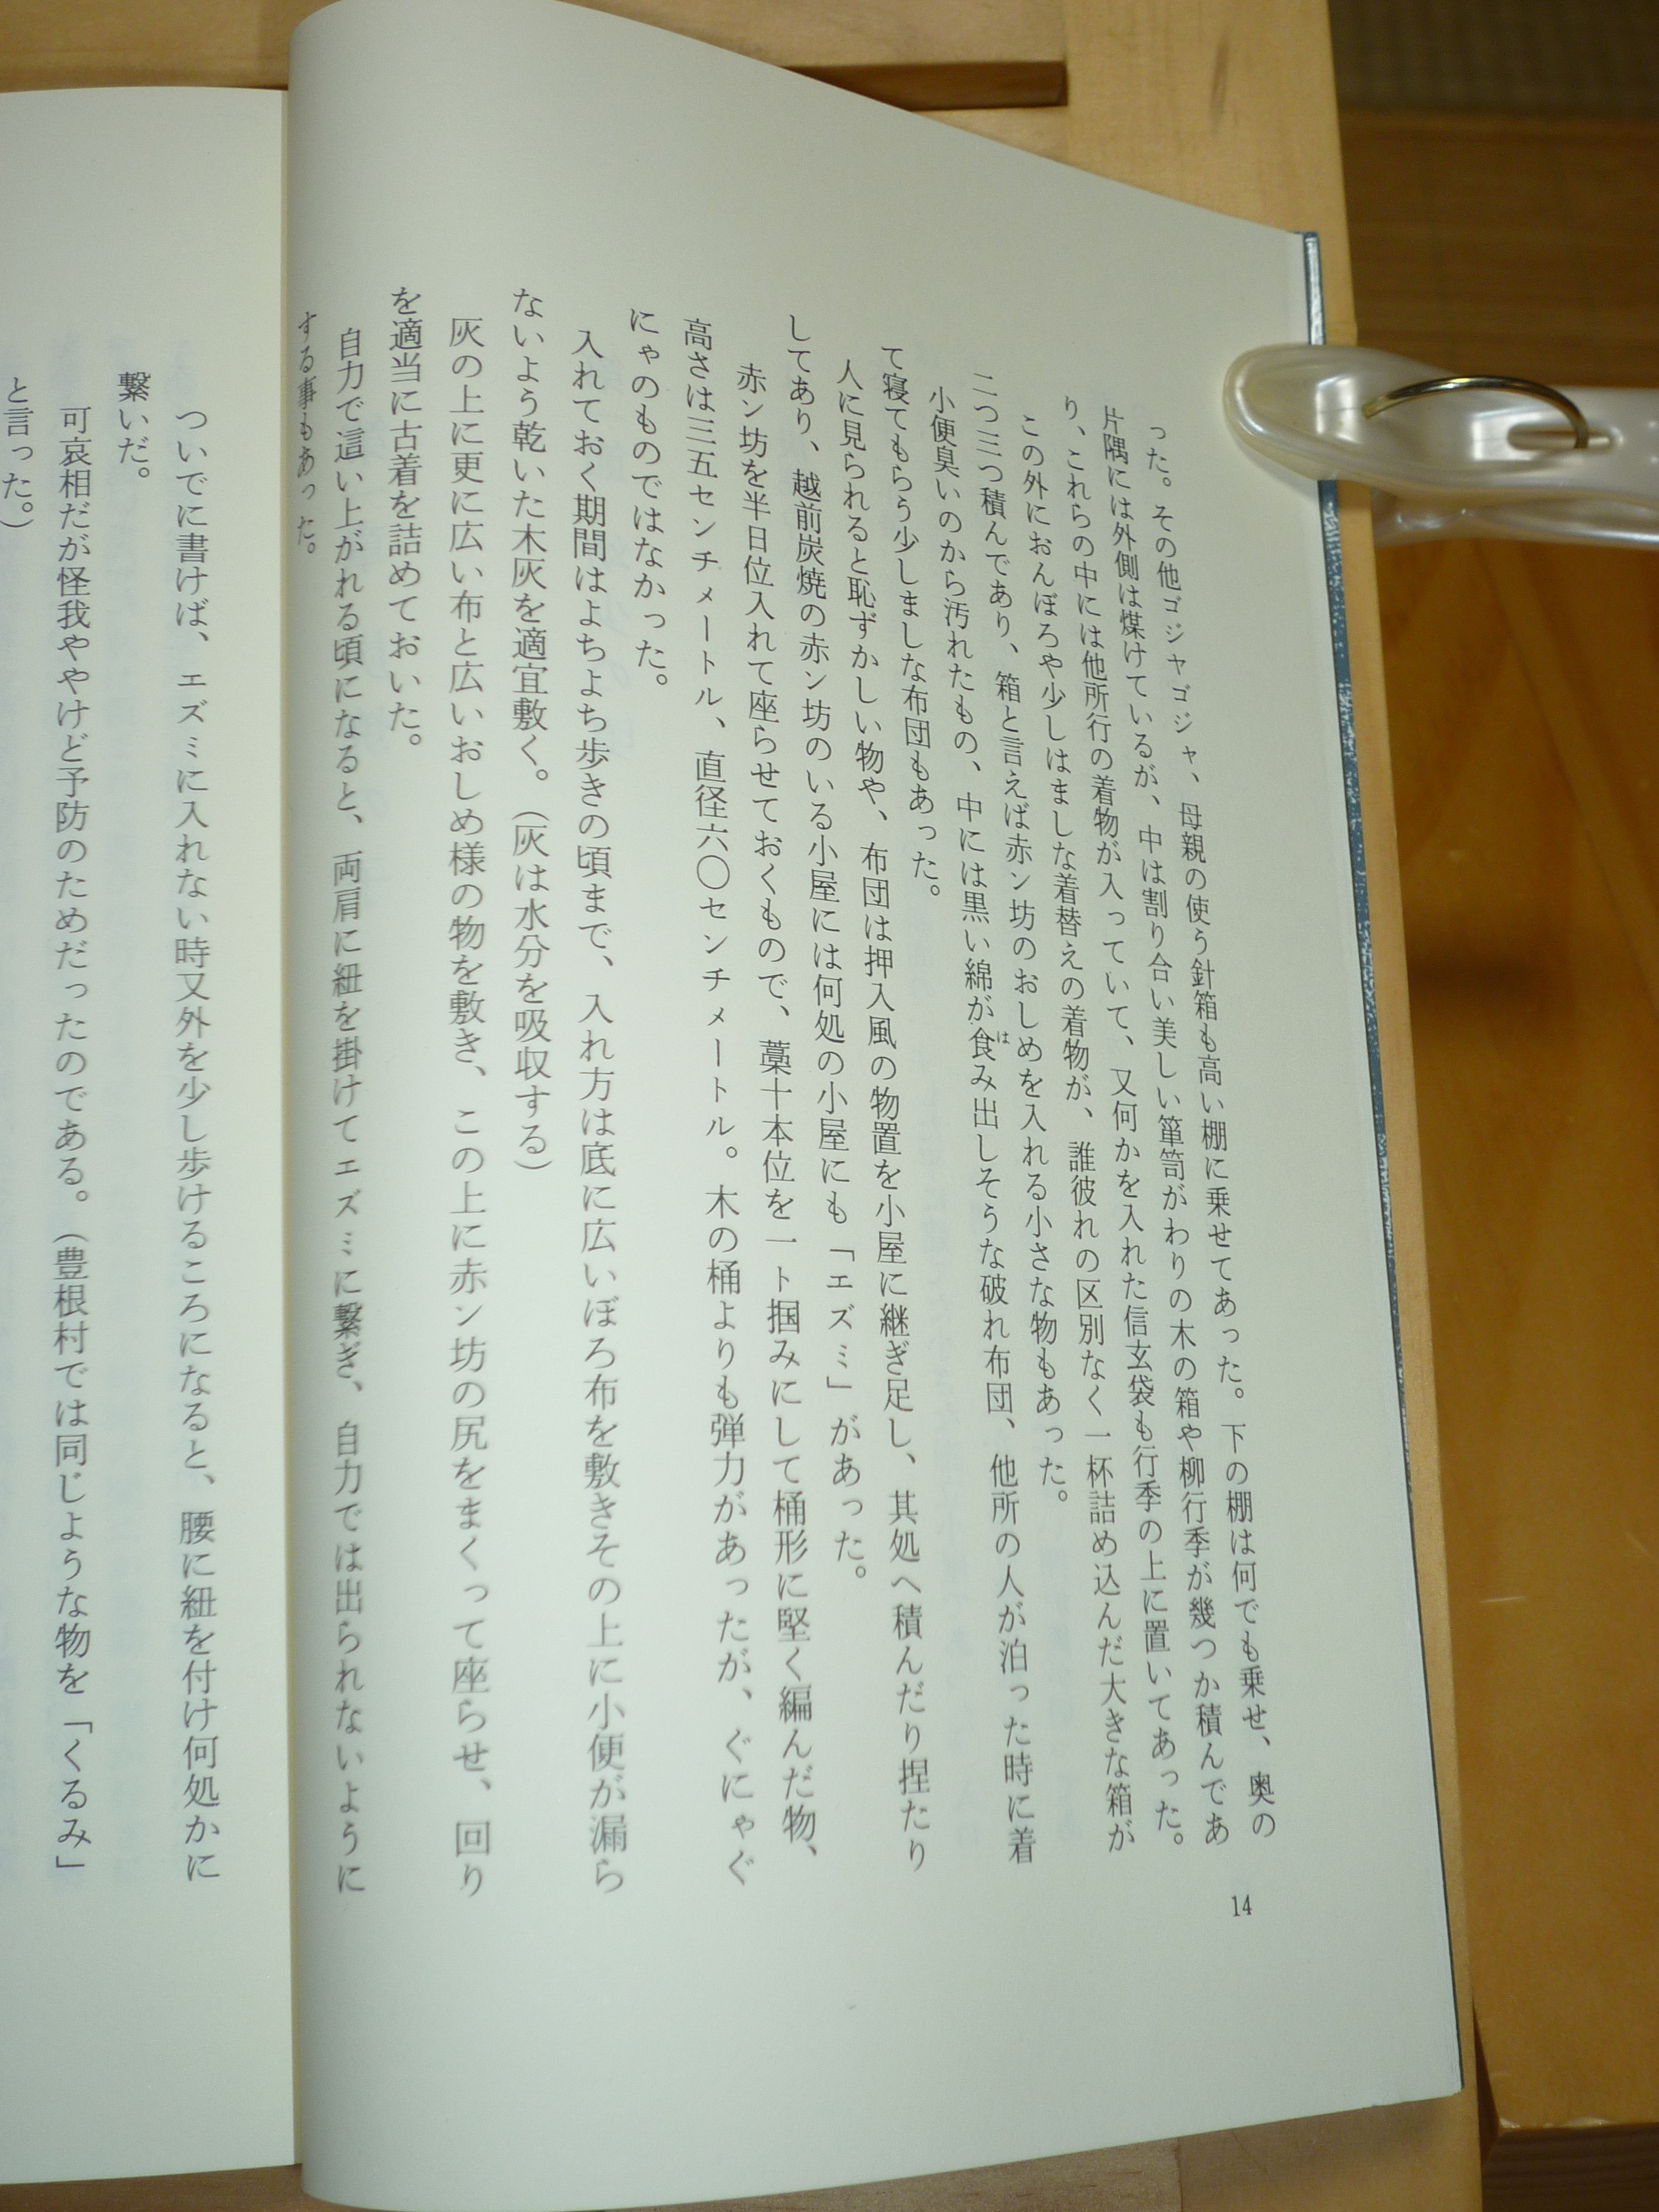 った。その他ゴジャゴジャ、母親の使う針箱も高い棚に乗せてあった。下の棚は何でも乗せ、奥の
片隅には外側は煤けているが、中は割り合い美しい箪笥がわりの木の箱や柳行李が幾つか積んであ
り、これらの中には他所行の着物が入っていて、又何かを入れた信玄袋も行季の上に置いてあった。
この外におんぼろや少しはましな着替えの着物が、誰彼れの区別なく一杯詰め込んだ大きな箱が
二つ三つ積んであり、箱と言えば赤ン坊のおしめを入れる小さな物もあった。
小便臭いのから汚れたもの、中には黒い綿が食み出しそうな破れ布団、他所の人が泊った時に着
は
て寝てもらう少しましな布団もあった。
人に見られると恥ずかしい物や、布団は押入風の物置を小屋に継ぎ足し、其処へ積んだり捏たり
してあり、越前炭焼の赤ン坊のいる小屋には何処の小屋にも「エズミ」があった。
赤ン坊を半日位入れて座らせておくもので、藁十本位を一ト掴みにして桶形に堅く編んだ物、
高さは三五センチメートル、直径六〇センチメートル。木の桶よりも弾力があったが、ぐにゃぐ
にゃのものではなかった。
入れておく期間はよちよち歩きの頃まで、入れ方は底に広いぼろ布を敷きその上に小便が漏ら
ないよう乾いた木灰を適宜敷く。（灰は水分を吸収する）
灰の上に更に広い布と広いおしめ様の物を敷き、この上に赤ン坊の尻をまくって座らせ、回り
を適当に古着を詰めておいた。
自力で這い上がれる頃になると、両肩に紐を掛けてエズミに繋ぎ、自力では出られないように
する事もあった。
14
ついでに書けば、エズミに入れない時又外を少し歩けるころになると、腰に紐を付け何処かに
繋いだ。
可哀相だが怪我ややけど予防のためだったのである。（豊根村では同じような物を「くるみ」
と言った。）